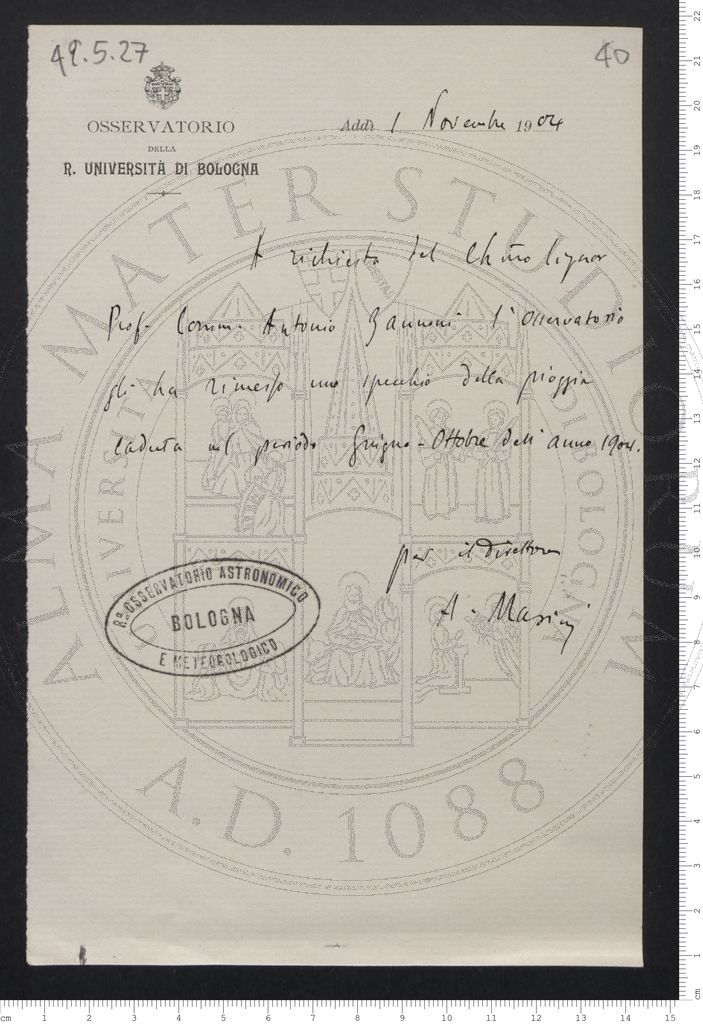 49.5.27
40
OSSERVATORIO
DELLA
R. UNIVERSITÀ DI BOLOGNA
Addì 1 Novembre 1904
A richiesta del Ch.mo Signor
Prof. Comm. Antonio Zannoni l'Osservatorio
gli ha rimesso uno specchio della pioggia
caduta nel periodo Giugno-Ottobre dell'anno 1904.
per il Direttore
A. Masini
Ro. OSSERVATORIO ASTRONOMICO
BOLOGNA
E METEOROLOGICO
ALMA MATER STUDIORUM
UNIVERSITÀ DI BOLOGNA
A.D. 1088